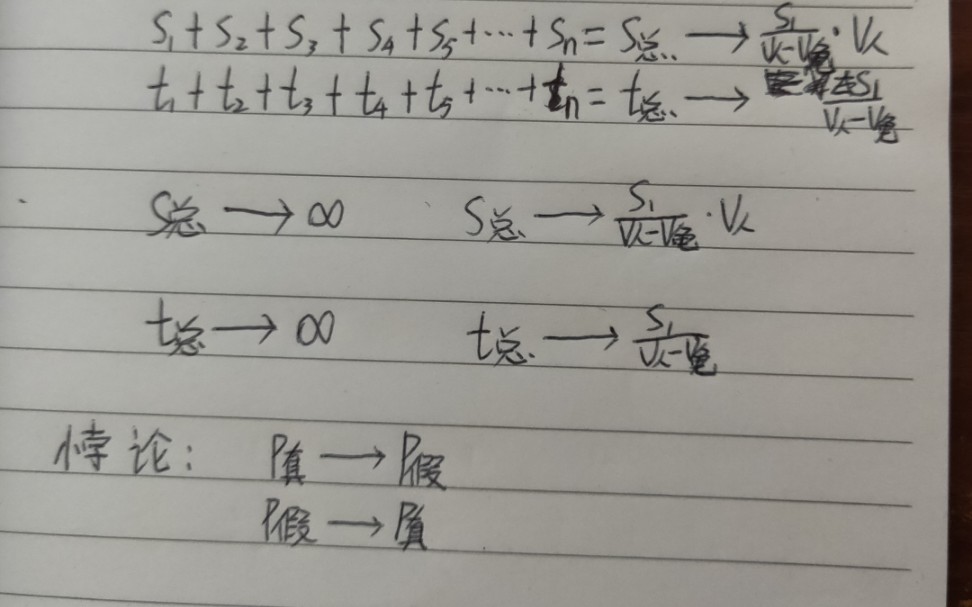 S₁+S₂+S₃+S₄+S₅+⋯+Sₙ=S总. → S₁/(V人−V龟)·V人
t₁+t₂+t₃+t₄+t₅+⋯+tₙ=t总. → S₁/(V人−V龟)
S总 → ∞ S总. → S₁/(V人−V龟)·V人
t总 → ∞ t总. → S₁/(V人−V龟)
悖论: P真 → P假
P假 → P真